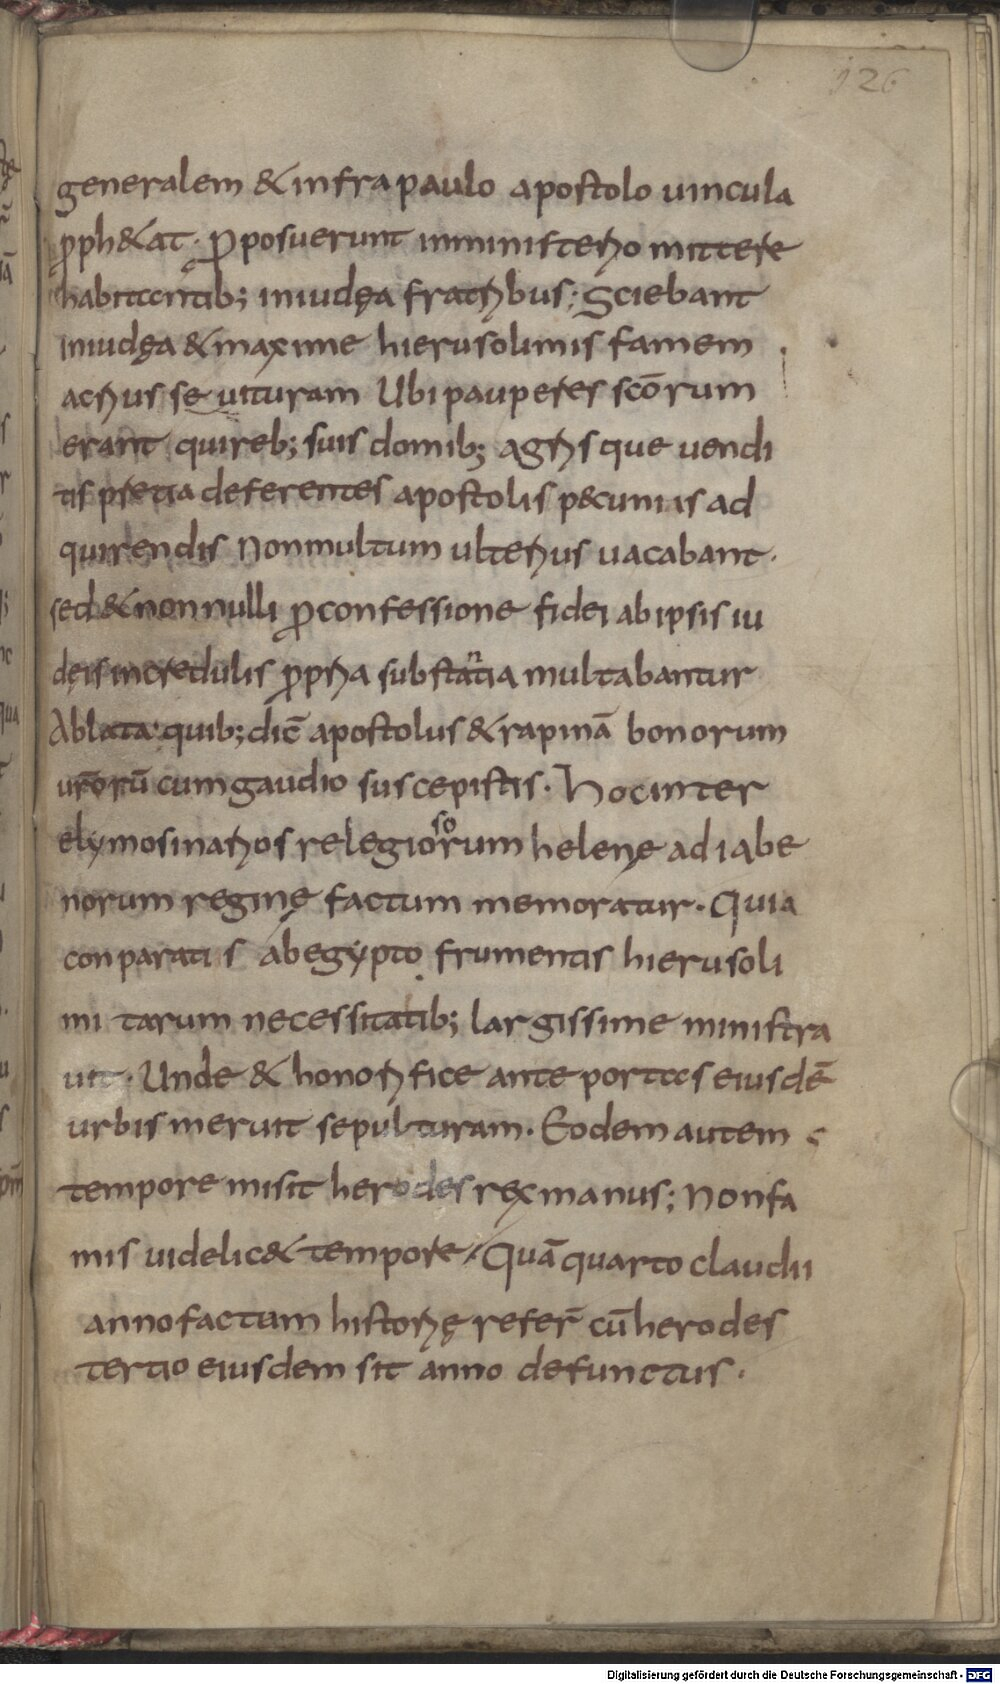 126
generalem & infra paulo apostolo uincula
p̄ph&at · p̄posuerunt in ministerio mittere
habitantib; in iudęa fratribus; Sciebant
in iudęa & maxime hierusolimis famem
acrius seuituram Ubi pauperes scōrum
erant qui reb; suis domib; agris que uendi
tis pretia deferentes apostolis p&cuniis ad
quirendis non multum ulterius uacabant ·
sed & non nulli p̄ confessione fidei ab ipsis iu
dęis incredulis p̄pria substantia multabantur
Ablata quib; dic̄ apostolus & rapinā bonorum
ur̄orū cum gaudio suscepistis · Hoc inter
elymosinarios relegiosorum helenę adiabe
norum reginę factum memoratur · Quia
conparatis ab egypto frumentis hierusoli
mitarum necessitatib; largissime ministra
uit · Unde & honorifice ante portas eiusdē
urbis meruit sepulturam · Eodem autem
tempore misit herodes rex manus; Non fa
mis uidelic& tempore / Quā quarto claudii
anno factam historię refer̄ cū herodes
tertio eiusdem sit anno defunctus ·
Digitalisierung gefördert durch die Deutsche Forschungsgemeinschaft - DFG